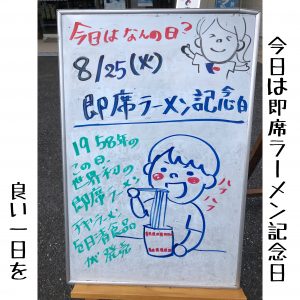 今日は即席ラーメン記念日
今日はなんの日?
8/25(火)
即席ラーメン記念日
1958年の
この日、
世界初の
即席ラーメン
チキンラーメン
が発売
ハフ
ハフ
良い一日を